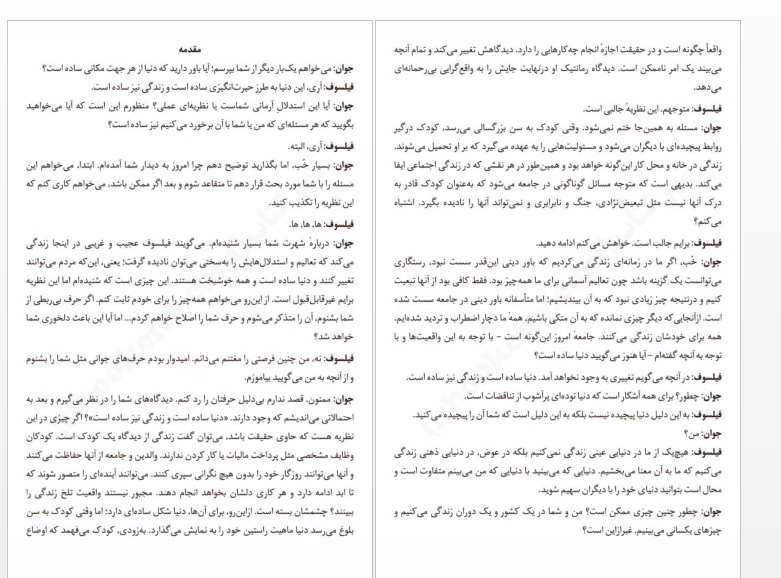 مقدمه
جوان: می‌خواهم یک‌بار دیگر از شما بپرسم؛ آیا باور دارید که دنیا از هر جهت مکانی ساده است؟
فیلسوف: آری، این دنیا به طرز حیرت‌انگیزی ساده است و زندگی نیز ساده است.
جوان: آیا این استدلال آرمانی شماست یا نظریه‌ای عملی؟ منظورم این است که آیا می‌خواهید
بگویید که هر مسئله‌ای که من یا شما با آن برخورد می‌کنیم نیز ساده است؟
فیلسوف: آری، البته.
جوان: بسیار خُب، اما بگذارید توضیح دهم چرا امروز به دیدار شما آمده‌ام. ابتدا، می‌خواهم این
مسئله را با شما مورد بحث قرار دهم تا متقاعد شوم و بعد اگر ممکن باشد، می‌خواهم کاری کنم که
این نظریه را تکذیب کنید.
فیلسوف: ها، ها، ها.
جوان: دربارهٔ شهرت شما بسیار شنیده‌ام. می‌گویند فیلسوف عجیب و غریبی در اینجا زندگی
می‌کند که تعالیم و استدلال‌هایش را به‌سختی می‌توان نادیده گرفت؛ یعنی، این‌که مردم می‌توانند
تغییر کنند و دنیا ساده است و همه خوشبخت هستند. این چیزی است که شنیده‌ام اما این نظریه
برایم غیرقابل‌قبول است. از این‌رو می‌خواهم همه‌چیز را برای خودم ثابت کنم. اگر حرف بی‌ربطی از
شما بشنوم، آن را متذکر می‌شوم و حرف شما را اصلاح خواهم کردم... اما آیا این باعث دلخوری شما
خواهد شد؟
فیلسوف: نه، من چنین فرصتی را مغتنم می‌دانم. امیدوار بودم حرف‌های جوانی مثل شما را بشنوم
و از آنچه به من می‌گویید بیاموزم.
جوان: ممنون. قصد ندارم بی‌دلیل حرفتان را رد کنم. دیدگاه‌های شما را در نظر می‌گیرم و بعد به
احتمالاتی می‌اندیشم که وجود دارند. «دنیا ساده است و زندگی نیز ساده است»؟ اگر چیزی در این
نظریه هست که حاوی حقیقت باشد، می‌توان گفت زندگی از دیدگاه یک کودک است. کودکان
وظایف مشخصی مثل پرداخت مالیات یا کار کردن ندارند. والدین و جامعه از آنها حفاظت می‌کنند
و آنها می‌توانند روزگار خود را بدون هیچ نگرانی سپری کنند. می‌توانند آینده‌ای را متصور شوند که
تا ابد ادامه دارد و هر کاری دلشان بخواهد انجام دهند. مجبور نیستند واقعیت تلخ زندگی را
ببینند؟ چشمشان بسته است. ازاین‌رو، برای آن‌ها، دنیا شکل ساده‌ای دارد؛ اما وقتی کودک به سن
بلوغ می‌رسد دنیا ماهیت راستین خود را به نمایش می‌گذارد. به‌زودی، کودک می‌فهمد که اوضاع
واقعاً چگونه است و در حقیقت اجازهٔ انجام چه‌کارهایی را دارد. دیدگاهش تغییر می‌کند و تمام آنچه
می‌بیند یک امر ناممکن است. دیدگاه رمانتیک او درنهایت جایش را به واقع‌گرایی بی‌رحمانه‌ای
می‌دهد.
فیلسوف: متوجهم. این نظریهٔ جالبی است.
جوان: مسئله به همین‌جا ختم نمی‌شود. وقتی کودک به سن بزرگسالی می‌رسد، کودک درگیر
روابط پیچیده‌ای با دیگران می‌شود و مسئولیت‌هایی را به عهده می‌گیرد که بر او تحمیل می‌شوند.
زندگی در خانه و محل کار این‌گونه خواهد بود و همین‌طور در هر نقشی که در زندگی اجتماعی ایفا
می‌کند. بدیهی است که متوجه مسائل گوناگونی در جامعه می‌شود که به‌عنوان کودک قادر به
درک آنها نیست مثل تبعیض‌نژادی، جنگ و نابرابری و نمی‌تواند آنها را نادیده بگیرد. اشتباه
می‌کنم؟
فیلسوف: برایم جالب است. خواهش می‌کنم ادامه دهید.
جوان: خُب، اگر ما در زمانه‌ای زندگی می‌کردیم که باور دینی این‌قدر سست نبود، رستگاری
می‌توانست یک گزینه باشد چون تعالیم آسمانی برای ما همه‌چیز بود. فقط کافی بود از آنها تبعیت
کنیم و درنتیجه چیز زیادی نبود که به آن بیندیشیم؛ اما متأسفانه باور دینی در جامعه سست شده
است. ازآنجایی‌که دیگر چیزی نمانده که به آن متکی باشیم، همهٔ ما دچار اضطراب و تردید شده‌ایم.
همه برای خودشان زندگی می‌کنند. جامعهٔ امروز این‌گونه است – با توجه به این واقعیت‌ها و با
توجه به آنچه گفته‌ام – آیا هنوز می‌گویید دنیا ساده است؟
فیلسوف: در آنچه می‌گویم تغییری به وجود نخواهد آمد. دنیا ساده است و زندگی نیز ساده است.
جوان: چطور؟ برای همه آشکار است که دنیا توده‌ای پرآشوب از تناقضات است.
فیلسوف: به این دلیل دنیا پیچیده نیست بلکه به این دلیل است که شما آن را پیچیده می‌کنید.
جوان: من؟
فیلسوف: هیچ‌یک از ما در دنیایی عینی زندگی نمی‌کنیم بلکه در عوض، در دنیایی ذهنی زندگی
می‌کنیم که ما به آن معنا می‌بخشیم. دنیایی که می‌بینید با دنیایی که من می‌بینم متفاوت است و
محال است بتوانید دنیای خود را با دیگران سهیم شوید.
جوان: چطور چنین چیزی ممکن است؟ من و شما در یک کشور و یک دوران زندگی می‌کنیم و
چیزهای یکسانی می‌بینیم. غیرازاین است؟